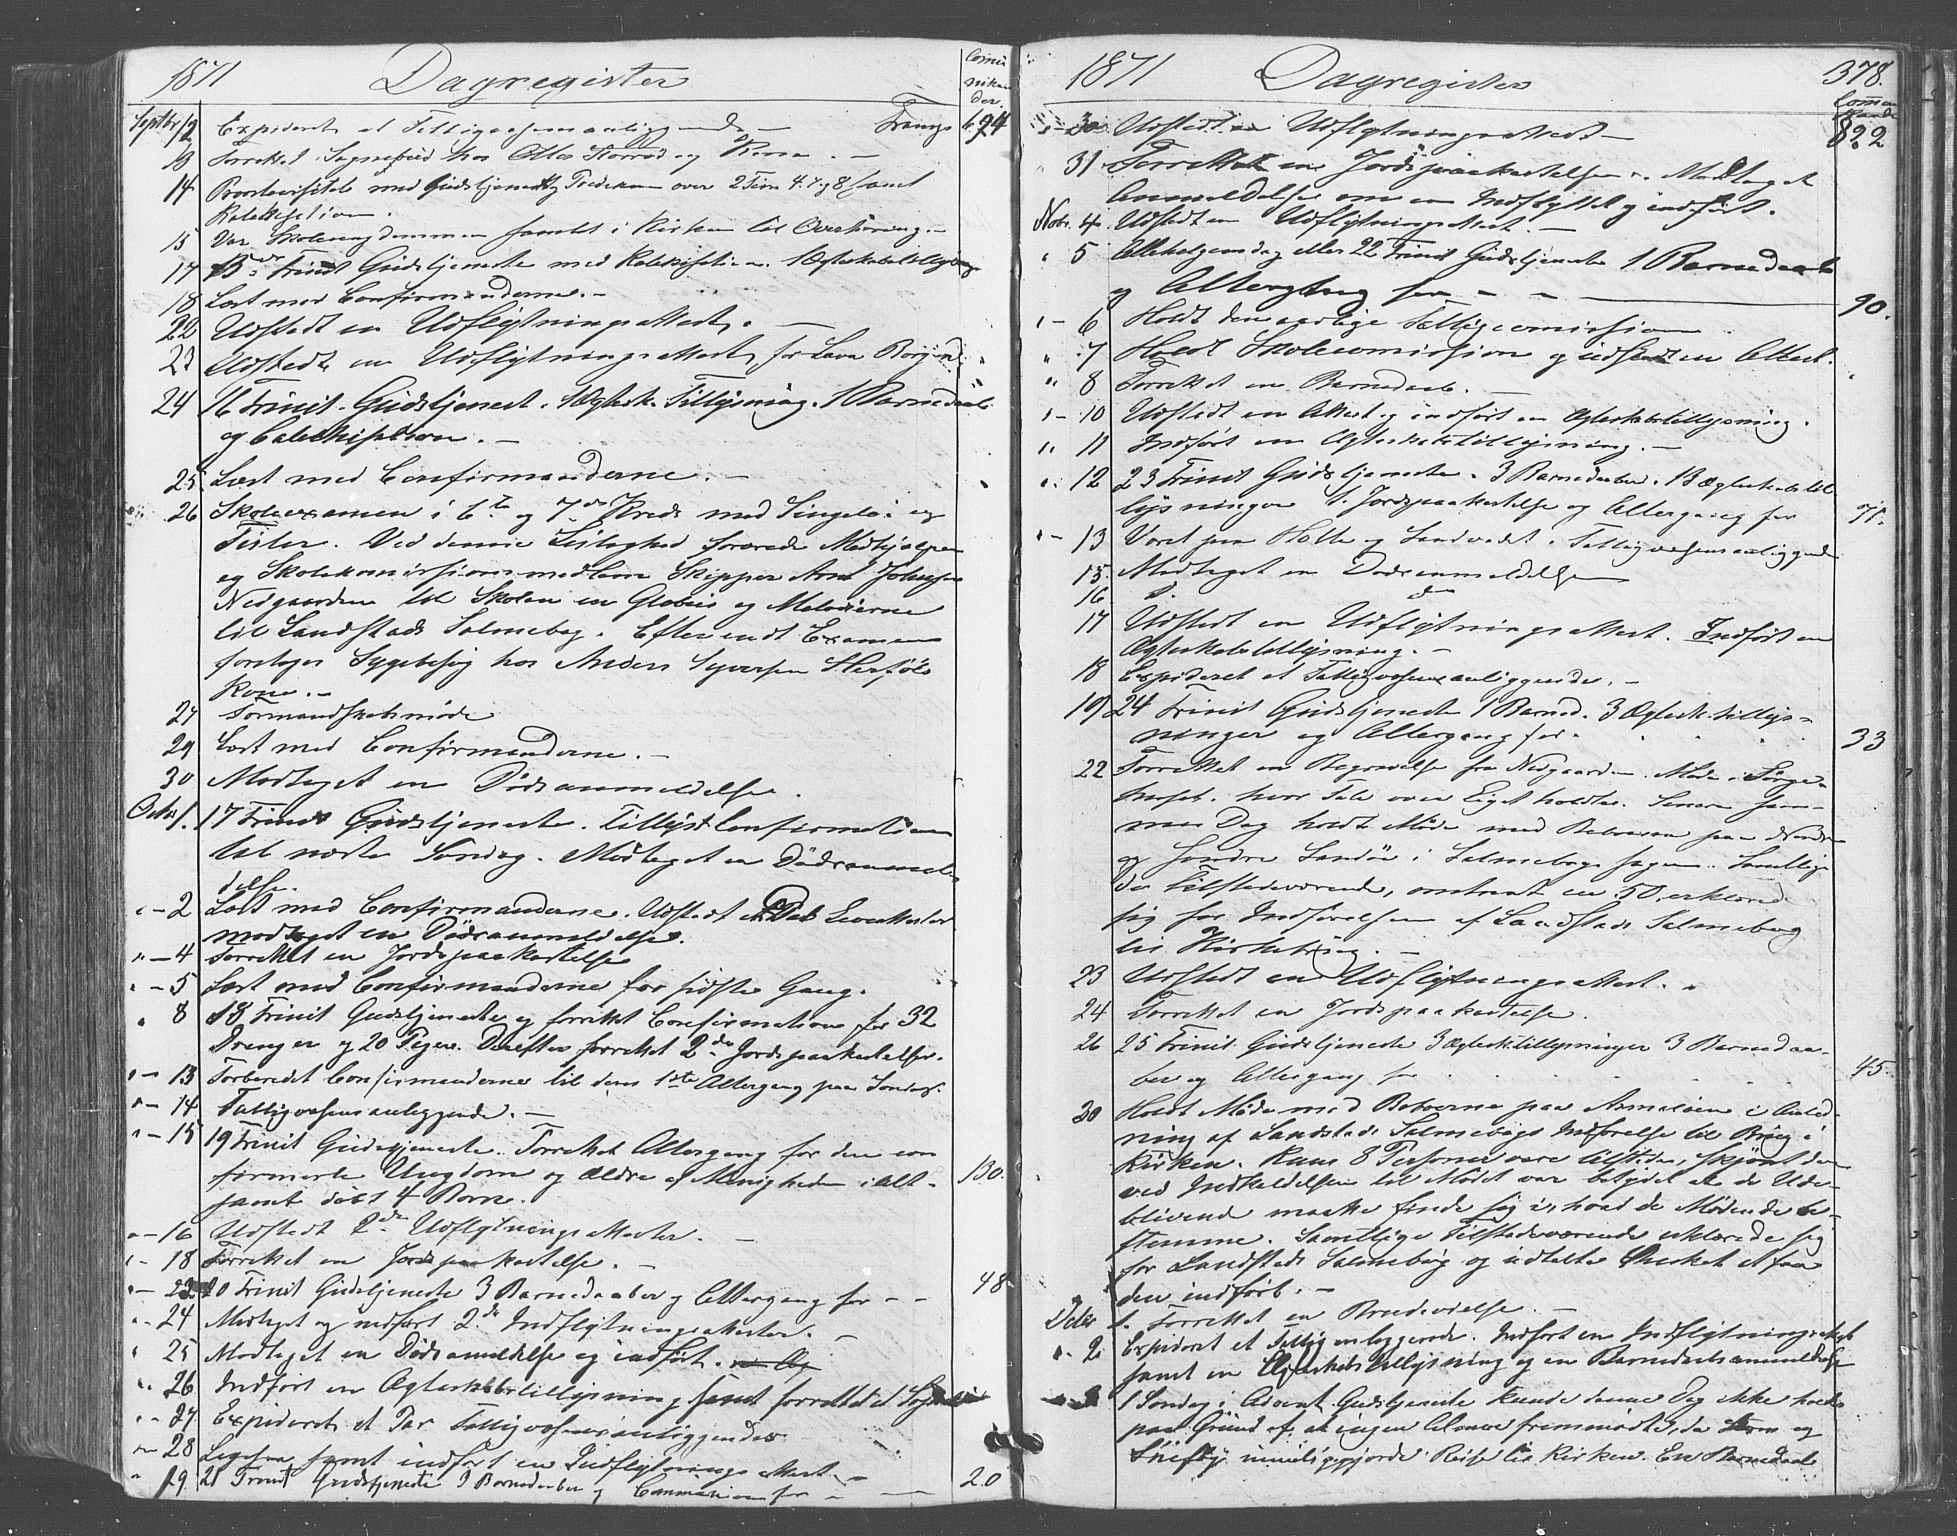 1871 Dagregister Comu-
nikan-
der.
Septbr 12 Expideret et Fattigvæsensanliggende — Transp. 694
13 Forrettet Sognebud hos
14 Provstevisitats med Gudstjeneste Prædiken over 2 Tim. 4. 7 og 8 samt
Katekisation.
15 Var Skoleungdommen samlet i Kirken til Overhøring. —
17 15de Trinit Gudstjeneste med Katekisation. 1 Ægteskabstillysning
18 Læst med Confirmanderne. —
22 Udstedt en Udflytningsattest. —
23 Udstedt en Udflytningsattest for
24 16 Trinit. Gudstjenest. 1 Ægtesk. Tillysning. 1 Barnedaab
og Catechisation. —
25. Læst med Confirmanderne. —
26 Skoleexamen i 6te og 7de Kreds med Singelø og
Tisler. Ved denne Leilighed forærede Medhjælper
og Skolekomissionsmedlem Skipper Johnsen
Nedgaarden til Skolen en Globus og Melodierne
til Landstads Salmebog. Efter endt Examen
foretoges Sygebesøg hos Anders Syversen Herføls
Kone. —
27 Formandskabsmøde
29 Læst med Confirmanderne. —
30 Modtaget en Dødsanmeldelse.
Octbr 1. 17 Trinit Gudstjeneste. Tillyst Confirmationen
til næste Søndag. Modtaget en Dødsanmel-
delse.
" – 2 Læst med Confirmanderne. Udstedt et Par Leveattester
modtaget en Dødsanmeldelse.
" – 4 Forrettet en Jordspaakastelse
" – 5 Læst med Confirmanderne for sidste Gang.
" 8 18 Trinit Gudstjeneste og forrettet Confirmation for 32
Drenger og 20 Piger. Derefter forrettet 2de Jordspaakastelser.
" – 13 Forberedet Confirmanderne til deres 1ste Altergang paa Søndag.
" – 14 Fattigvæsensanliggende. —
" – 15 19 Trinit Gudstjeneste. Forrettet Altergang for den con-
firmerte Ungdom og Ældre af Menigheden i alt - 130.
samt døbt 4 Børn.
" – 16 Udstedt 2de Udflytningsattester. —
" – 18 Forrettet en Jordspaakastelse. —
" – 22 20 Trinit Gudstjeneste 3 Barnedaaber og Altergang for — — 48
" – 24 Modtaget og indført 2de Indflytningsattester. —
" 25 Modtaget en Dødsanmeldelse og indført.
" . 26 Indført en Ægteskabstillysning samt forrettet et
" – 27 Expideret et Par Fattigvæsensanliggender
– 28 samt indført en Indflytnings Attest. —
" 29 21 Trinit Gudstjeneste 3 Barnedaaber og Communion for — — 20
1871 Dagregister 378.
Commu-
822
" – 30 Udstedt en Udflytningsattest —
" 31. Forrettet en Jordspaakastelse. Modtaget
Anmeldelse om en Indflyttet og indført.
Novbr. 4. Udstedt en Udflytningsattest. —
" 5 Allehelgensdag eller 22 Trinit Gudstjeneste 1 Barnedaab
og Altergang for — — 90.
" – 6 Holdt den aarlige Fattigcomission
" 7 Holdt Skolecomission og udstedt en Attest.
" 8 Forrettet en Barnedaab. —
" – 10 Udstedt en Attest og indført en Ægteskabstillysning.
" 11 Indført en Ægteskabstillysning. —
" . 12 23 Trinit Gudstjeneste. 3 Barnedaaber. 13 Ægteskabstil-
lysninger 1 Jordspaakastelse og Altergang for 71.
" – 13 Været paa Holte og Sandvedet i Fattigvæsensanliggende
15. Modtaget en Dødsanmeldelse
16 d. do
17 Udstedt en Udflytningsattest. Indført en
Ægteskabstillysning. —
18 Expideret et Fattigvæsensanliggende. —
19 24 Trinit Gudstjeneste 1 Barned. 3 Ægtesk.tillys-
ninger og Altergang for. 33
22 Forrettet en Begravelse fra Nedgaarden. Møde i Sørge-
huset, hvor Tale over Liget holdtes. Senere sam-
me Dag holdt Møde med Beboerne paa Nordre
og Søndre Sandø i Salmebogssagen. Samtlige
de Tilstedeværende, omtrent en 50, erklærede
sig for Indførelsen af Landstads Salmebog
til Kirkebrug. —
23 Udstedt en Udflytningsattest.
24 Forrettet en Jordspaakastelse.
26 25 Trinit Gudstjeneste 3 Ægtesk.tillysninger 3 Barnedaa-
ber og Altergang for 45.
30 Holdt Møde med Beboerne paa Asmaløen i Anled-
ning af Landstads Salmebogs Indførelse til Brug i
Kirken. Kun 8 Personer vare tilstede, skjønt der
ved Indkaldelsen til Mødet var betydet at de Ude-
blivende maatte finde sig i, hvad de Mødende be-
stemme. Samtlige Tilstedeværende erklærede sig
for Landstads Salmebog og udtalte Ønsket at faa
den indført. —
Decbr 1. Forrettet en Brudevielse. —
" . 2. Expideret et Fattiganliggende. Indført en Indflytningsattest
samt en Ægteskabstillysning og en Barnedaabsanmeldelse
" – 3 1 Søndag i Advent. Gudstjeneste kunde denne Dag ikke holdes
paa Grund af, at ingen Almue fremmødte, da Storm og
Snefog umuliggjorde Reise til Kirken. En Barnedaab